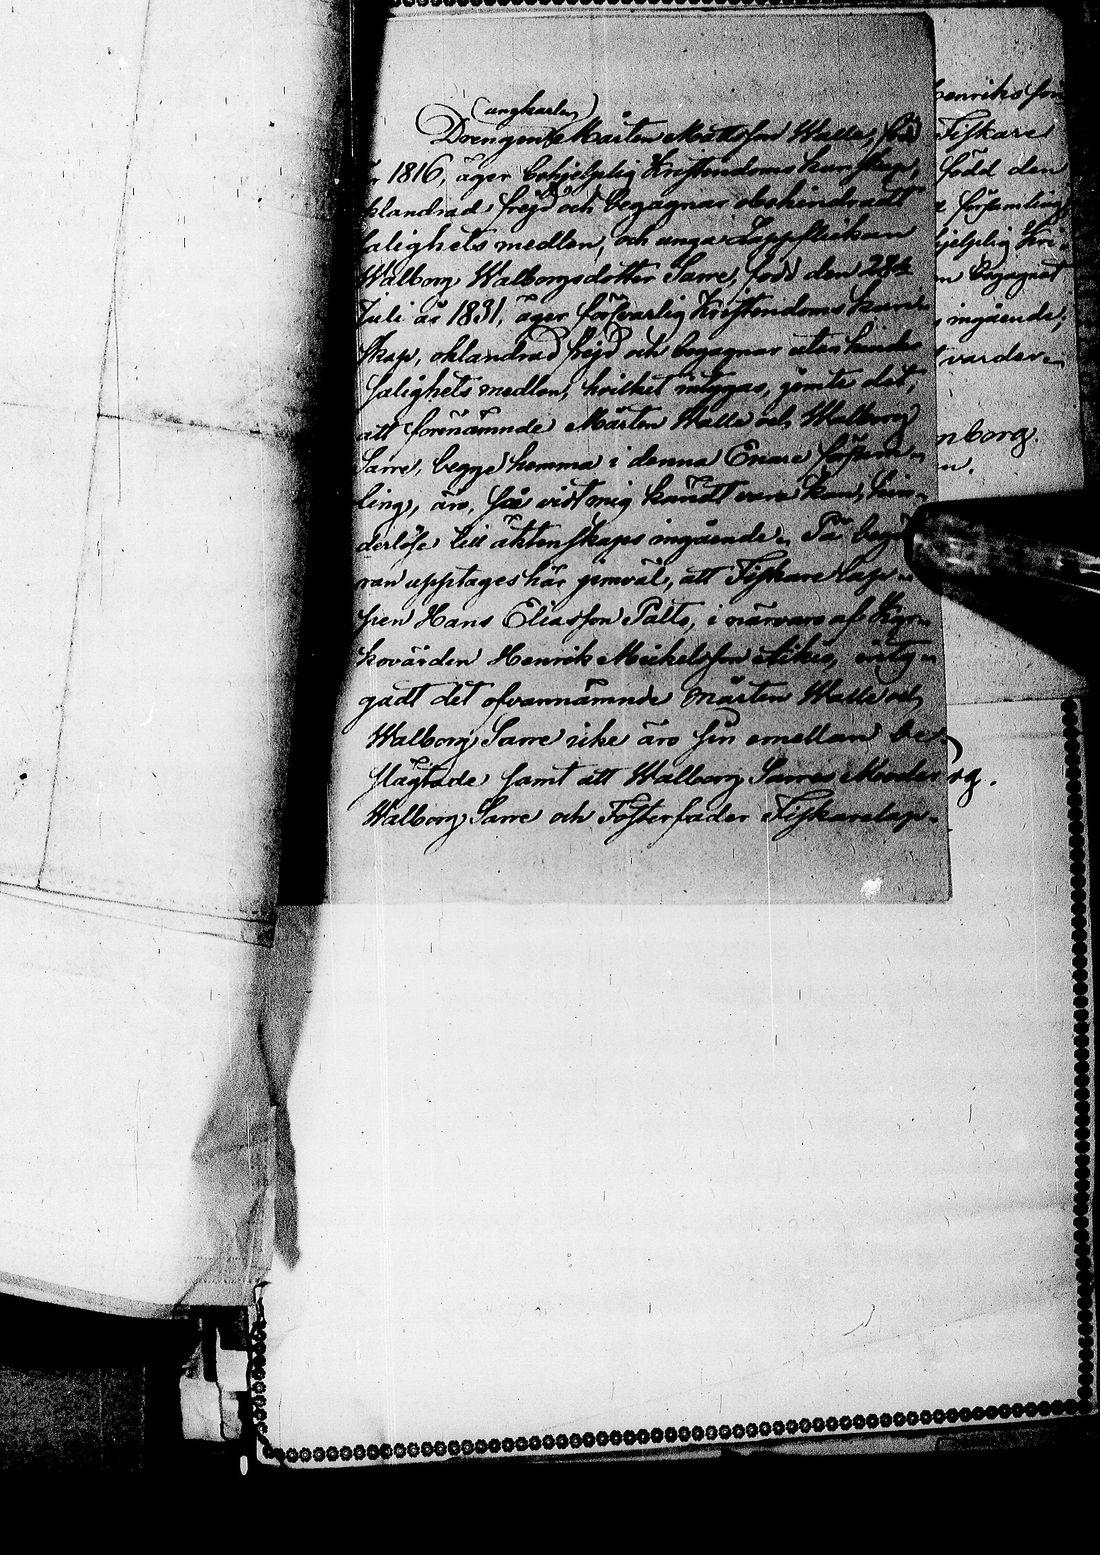 (ungkarlen)
Drengen Mårten Mattsson Walle, född
år 1816, äger behjelplig Kristendoms kunskap,
oklandrad frejd och begagnar obehindradt
salighets medlen, och unga Lappflickan
Walborg Walborgsdotter Sarre, född den 28de
Juli år 1831, äger försvarlig Kristendoms kun-
skap, oklandrad frejd och begagnar utan hinder
salighets medlen, hvilket intygas, jemte det,
att förenämnde Mårten Walle och Walborg
Sarre, begge hemma i denna Enare försam-
ling, äro, så vidt mig kändt vara kan, hin-
derlöse till äktenskaps ingående. På begä
ran upptages här jemväl, att Fiskare lap-
pen Hans Eliasson Palto, i närvaro af Kyr-
kovärden Henrik Mickelsson Aikio, inty-
gadt det ofvannämnde Mårten Walle och
Walborg Sarre icke äro sin emellan be-
slägtade samt att Walborg Sarres Moder
Walborg Sarre och Fosterfader Fiskarelap-
Henriksson
Fiskare
född den
församling
hjelplig Kri-
begagnat
ingående;
varder
nborg.
n.
rg.